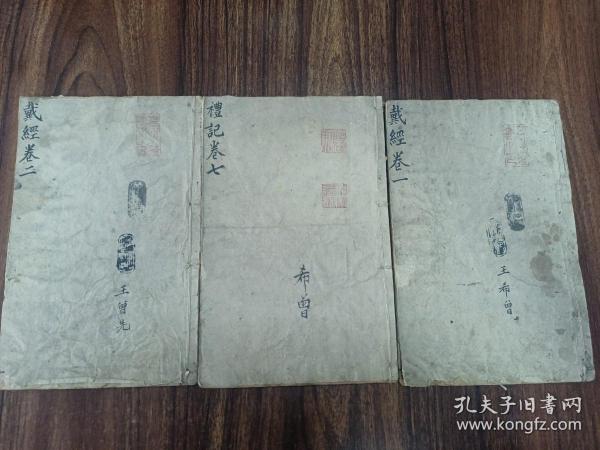 戴經卷二
王曾先
禮記卷七
希曾
戴經卷一
王希曾
孔夫子旧书网
www.kongfz.com